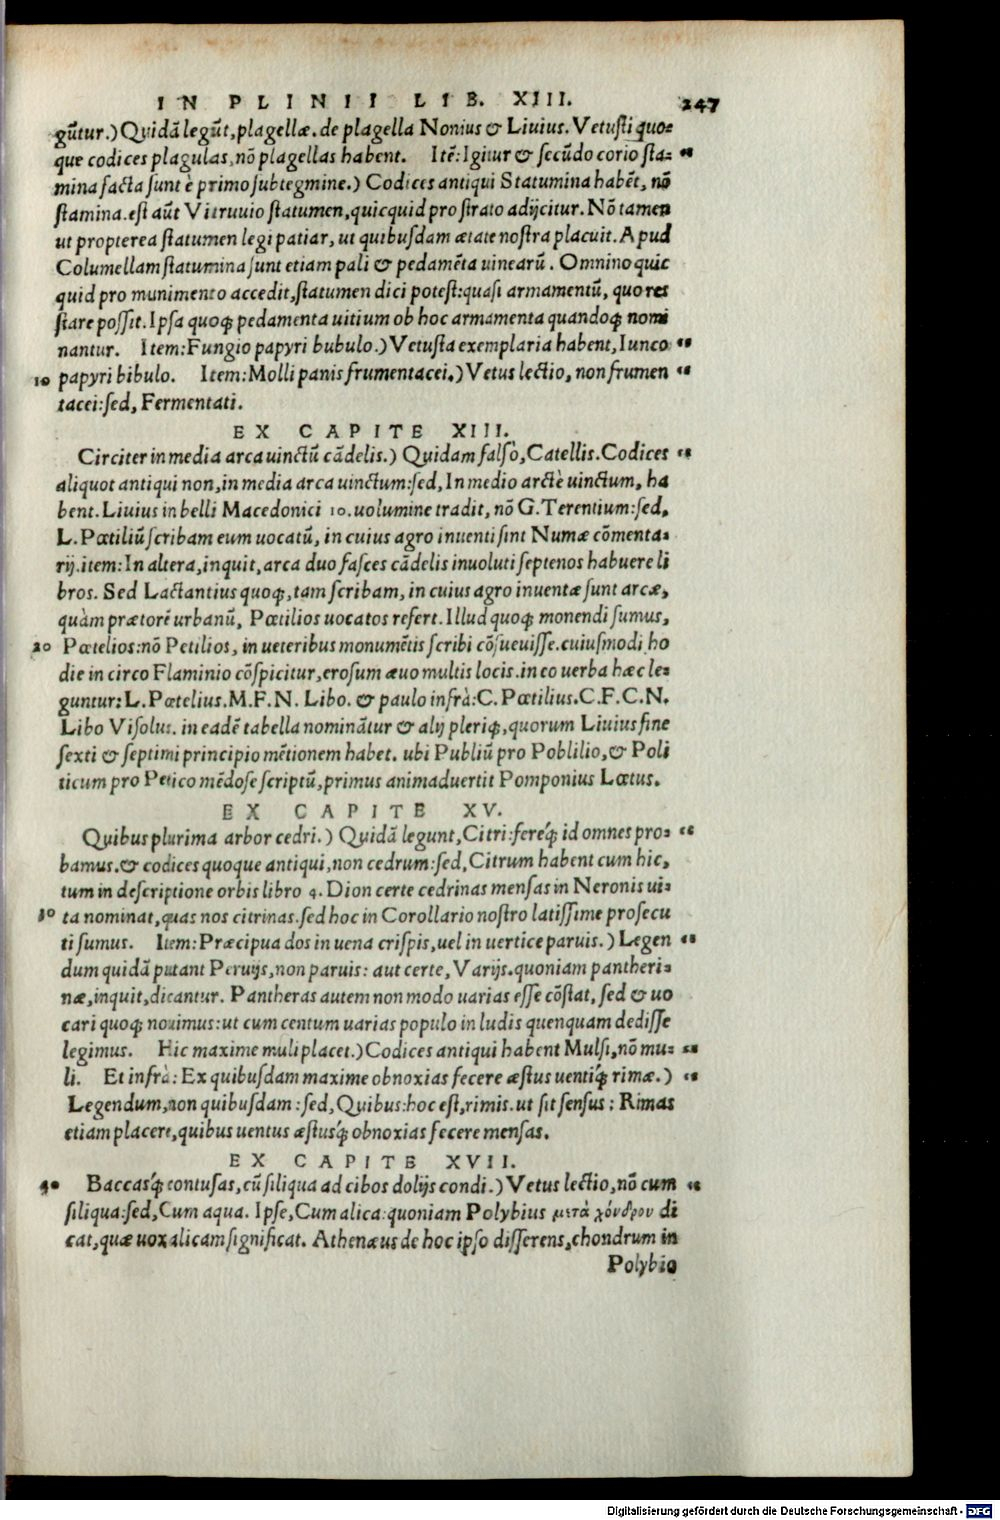 IN PLINII LIB. XIII. 247
gūtur.) Quidā legūt, plagellæ. de plagella Nonius & Liuius. Vetusti quo=
que codices plagulas, nō plagellas habent. Itē: Igitur & secūdo corio sta= "
mina facta sunt è primo subtegmine.) Codices antiqui Statumina habēt, nō
stamina. est aūt Vitruuio statumen, quicquid pro strato adijcitur. Nō tamen
ut propterea statumen legi patiar, ut quibusdam ætate nostra placuit. Apud
Columellam statumina sunt etiam pali & pedamēta uinearū. Omnino quic
quid pro munimento accedit, statumen dici potest: quasi armamentū, quo res
stare possit. Ipsa quoq; pedamenta uitium ob hoc armamenta quandoq; nomi
nantur. Item: Fungio papyri bubulo.) Vetusta exemplaria habent, Iunco "
10 papyri bibulo. Item: Molli panis frumentacei.) Vetus lectio, non frumen "
tacei: sed, Fermentati.
EX CAPITE XIII.
Circiter in media arca uinctū cādelis.) Quidam falsò, Catellis. Codices "
aliquot antiqui non, in media arca uinctum: sed, In medio arctè uinctum, ha
bent. Liuius in belli Macedonici 10. uolumine tradit, nō G. Terentium: sed,
L. Pœtiliū scribam eum uocatū, in cuius agro inuenti sint Numæ cōmenta=
rij. item: In altera, inquit, arca duo fasces cādelis inuoluti septenos habuere li
bros. Sed Lactantius quoq;, tam scribam, in cuius agro inuentæ sunt arcæ,
quàm prætorē urbanū, Pœtilios uocatos refert. Illud quoq; monendi sumus,
20 Pœtelios: nō Petilios, in ueteribus monumētis scribi cōsueuisse. cuiusmodi ho
die in circo Flaminio cōspicitur, erosum æuo multis locis. in eo uerba hæc le=
guntur: L. Pœtelius. M. F. N. Libo. & paulo infrà: C. Pœtilius. C. F. C. N.
Libo Visolus. in eadē tabella nominātur & alij pleriq;, quorum Liuius fine
sexti & septimi principio mētionem habet. ubi Publiū pro Poblilio, & Poli
ticum pro Petico mēdose scriptū, primus animaduertit Pomponius Lœtus.
EX CAPITE XV.
Quibus plurima arbor cedri.) Quidā legunt, Citri: fereq́; id omnes pro= "
bamus. & codices quoque antiqui, non cedrum: sed, Citrum habent cum hic,
tum in descriptione orbis libro 4. Dion certe cedrinas mensas in Neronis ui=
30 ta nominat, quas nos citrinas. sed hoc in Corollario nostro latissime prosecu
ti sumus. Item: Præcipua dos in uena crispis, uel in uertice paruis.) Legen "
dum quidā putant Peruijs, non paruis: aut certe, Varijs. quoniam pantheri=
næ, inquit, dicantur. Pantheras autem non modo uarias esse cōstat, sed & uo
cari quoq; nouimus: ut cum centum uarias populo in ludis quenquam dedisse
legimus. Hic maxime muli placet.) Codices antiqui habent Mulsi, nō mu= "
li. Et infrà: Ex quibusdam maxime obnoxias fecere æstus uentiq́; rimæ.) "
Legendum, non quibusdam: sed, Quibus: hoc est, rimis. ut sit sensus: Rimas
etiam placere, quibus uentus æstusq́; obnoxias fecere mensas.
EX CAPITE XVII.
40 Baccasq́; contusas, cū siliqua ad cibos dolijs condi.) Vetus lectio, nō cum "
siliqua: sed, Cum aqua. Ipse, Cum alica: quoniam Polybius μετὰ χόνδρου di
cat, quæ uox alicam significat. Athenæus de hoc ipso disserens, chondrum in
Polybio
Digitalisierung gefördert durch die Deutsche Forschungsgemeinschaft - DFG